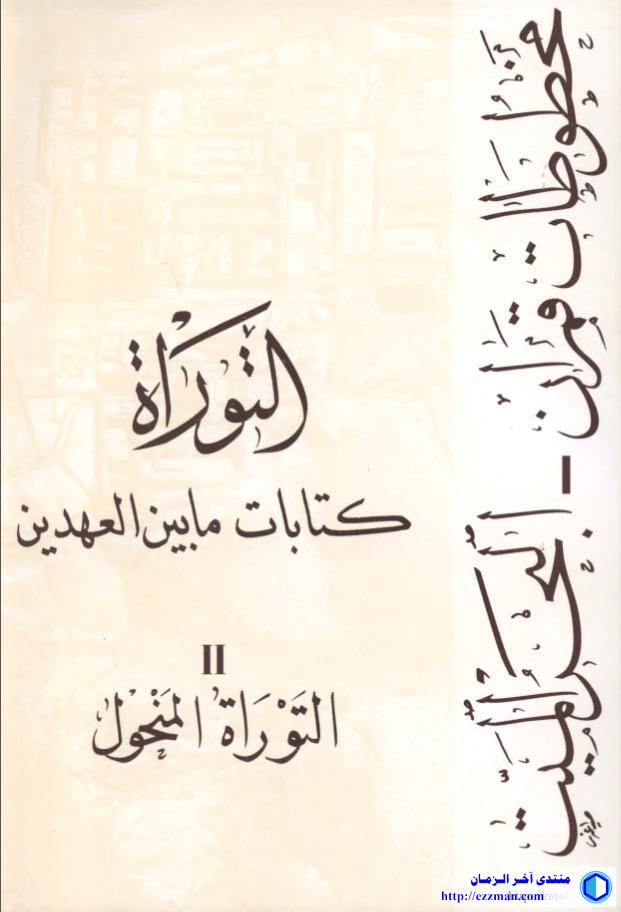 مخطوطات قمران - البحر الميت
التوراة
كتابات ما بين العهدين
II
التوراة المنحول
منتدى آخر الزمان
http://ezzman.com